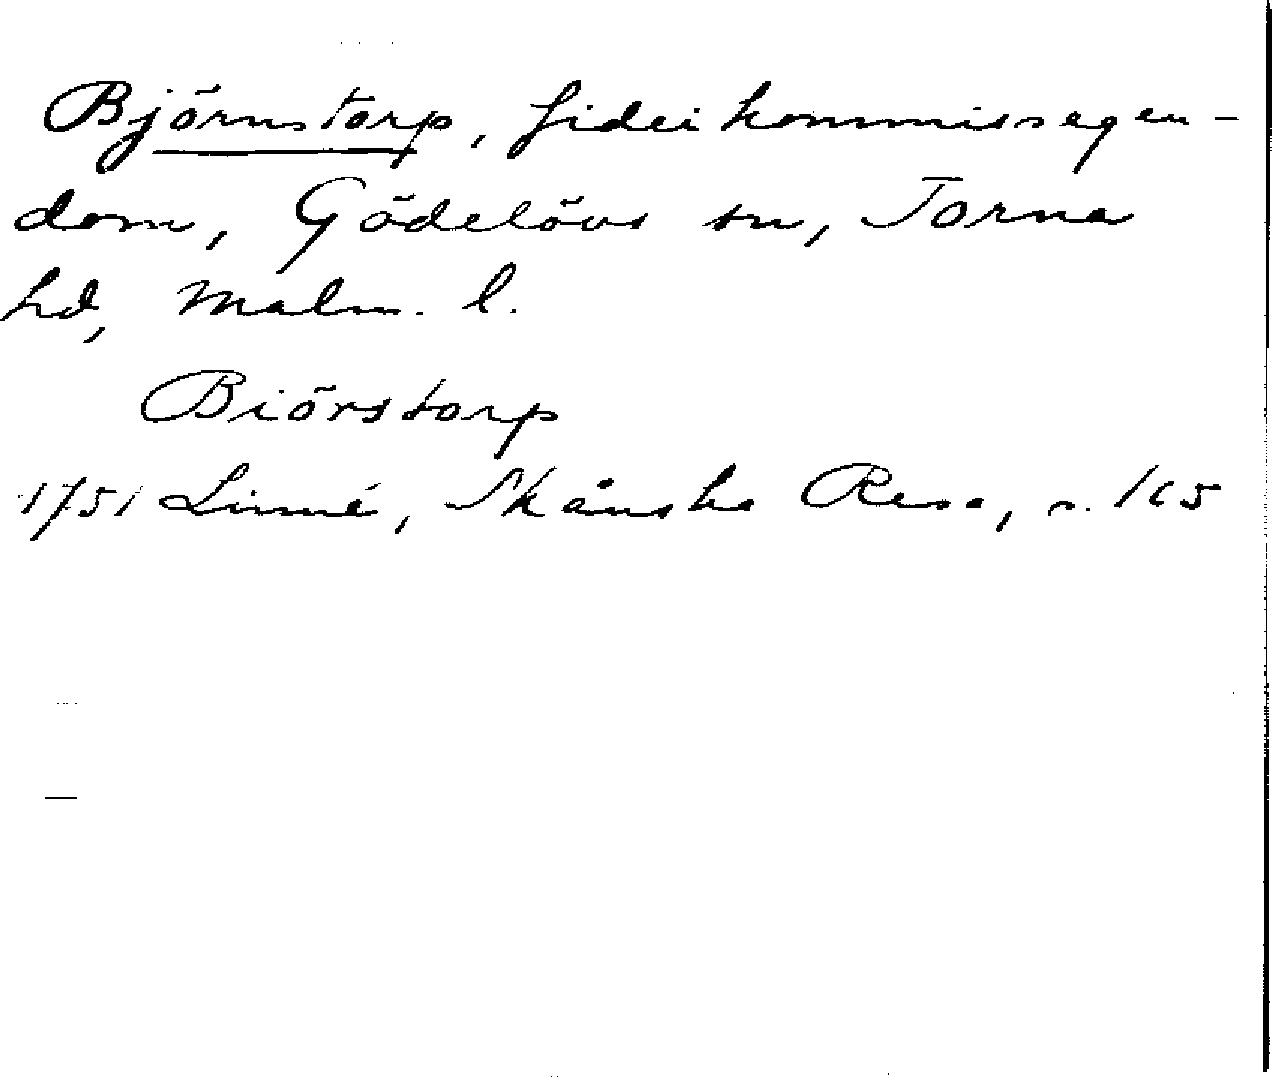 Björnstorp, fideikommissegen-
dom, Gödelövs sn, Torna
hd, Malm. l.
Biörstorp
1751 Linné, Skånska Resa, s. 165